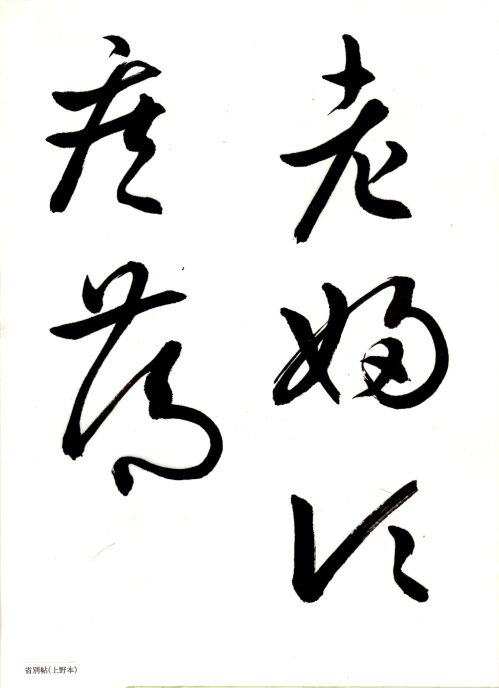 老婦頃
疾篤
省別帖(上野本)